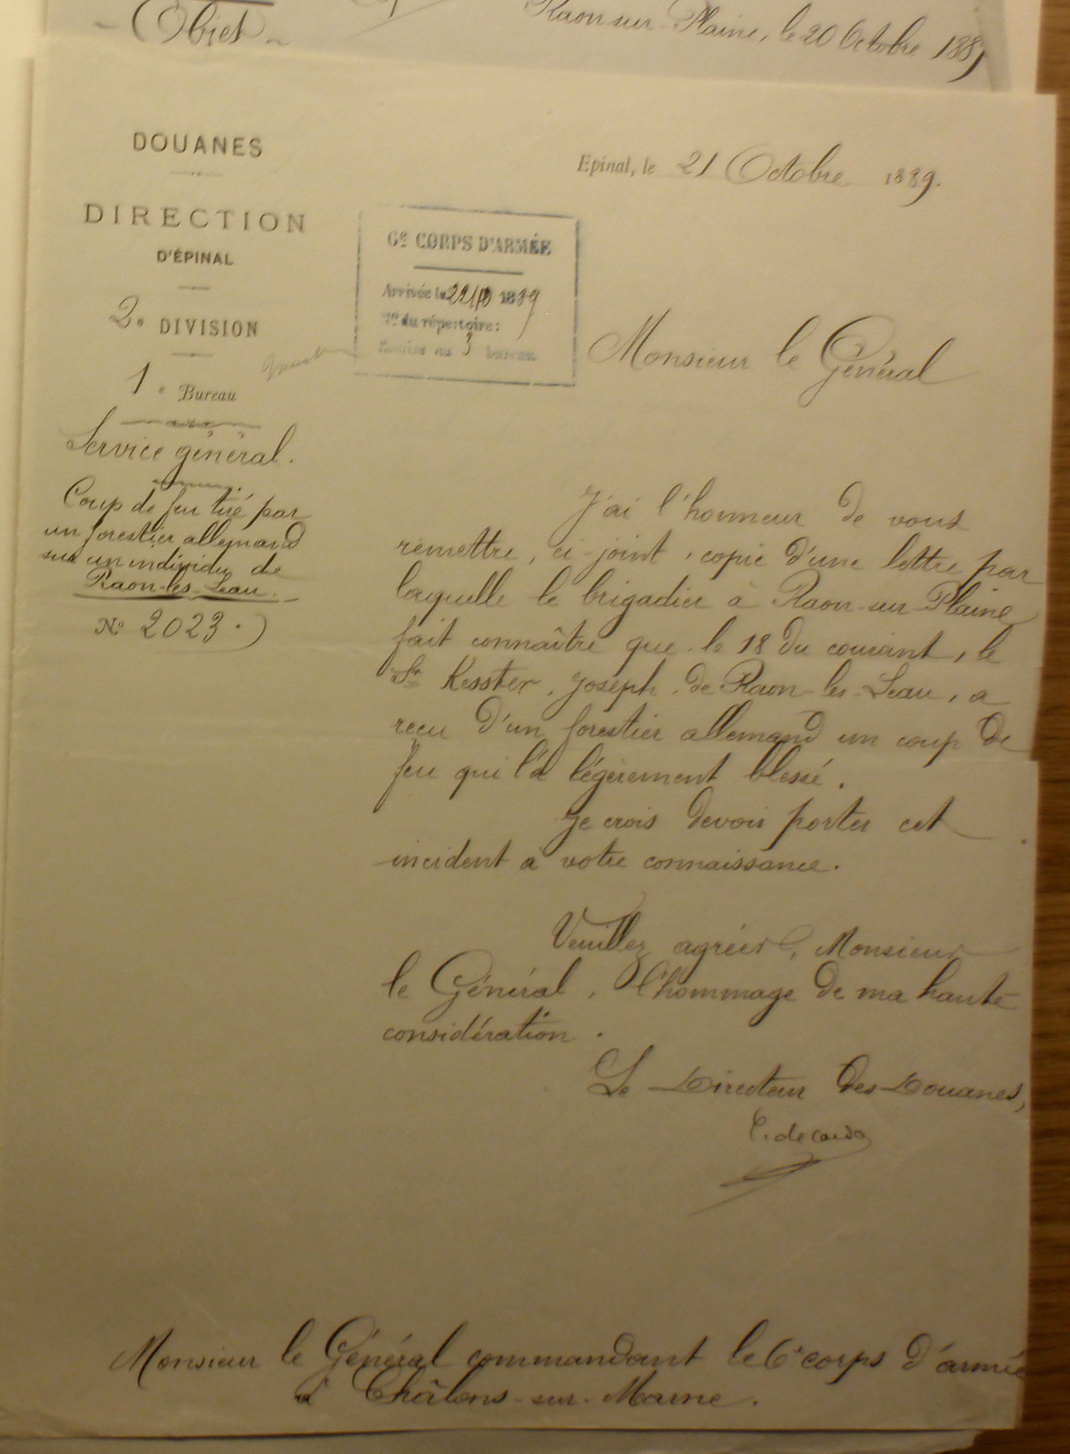 Objet
Raon-sur-Plaine, le 20 Octobre 1889
DOUANES
DIRECTION
D'ÉPINAL
2e DIVISION
1e Bureau
Service général.
Coup de feu tiré par
un forestier allemand
sur un individu de
Raon-les-Leau.
No 2023.
6e CORPS D'ARMÉE
Arrivée le 22/10 1889
No du répertoire:
3 bureau
Epinal, le 21 Octobre 1889.
Monsieur le Général
J'ai l'honneur de vous
remettre, ci-joint, copie d'une lettre par
laquelle le brigadier à Raon-sur-Plaine
fait connaître que le 18 du courant, le
Sr Kesster, Joseph, de Raon-les-Leau, a
reçu d'un forestier allemand un coup de
feu qui l'a légèrement blessé.
Je crois devoir porter cet
incident à votre connaissance.
Veuillez agréer, Monsieur
le Général, l'hommage de ma haute
considération.
Le Directeur des Douanes,
Monsieur le Général commandant le 6e corps d'armée
à Châlons-sur-Marne.